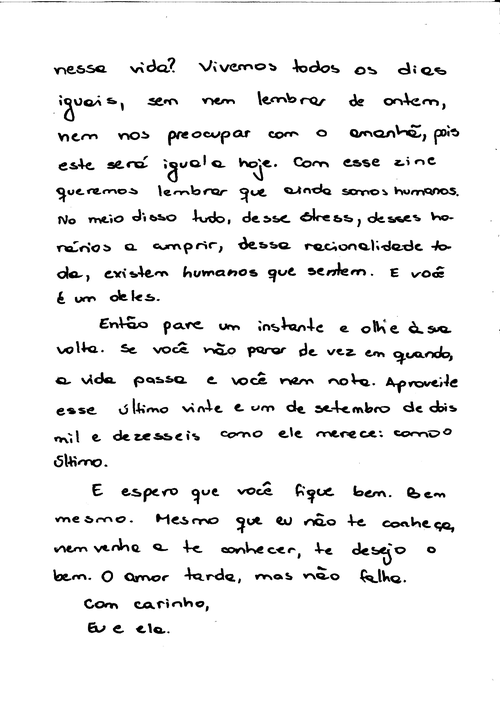 nessa vida? Vivemos todos os dias
iguais, sem nem lembrar de ontem,
nem nos preocupar com o amanhã, pois
este será igual a hoje. Com esse zine
queremos lembrar que ainda somos humanos.
No meio disso tudo, desse stress, desses ho-
rários a cumprir, dessa racionalidade to-
da, existem humanos que sentem. E você
é um deles.
Então pare um instante e olhe à sua
volta. Se você não parar de vez em quando,
a vida passa e você nem nota. Aproveite
esse último vinte e um de setembro de dois
mil e dezesseis como ele merece: como o
último.
E espero que você fique bem. Bem
mesmo. Mesmo que eu não te conheça,
nem venha a te conhecer, te desejo o
bem. O amor tarda, mas não falha.
Com carinho,
Eu e ela.